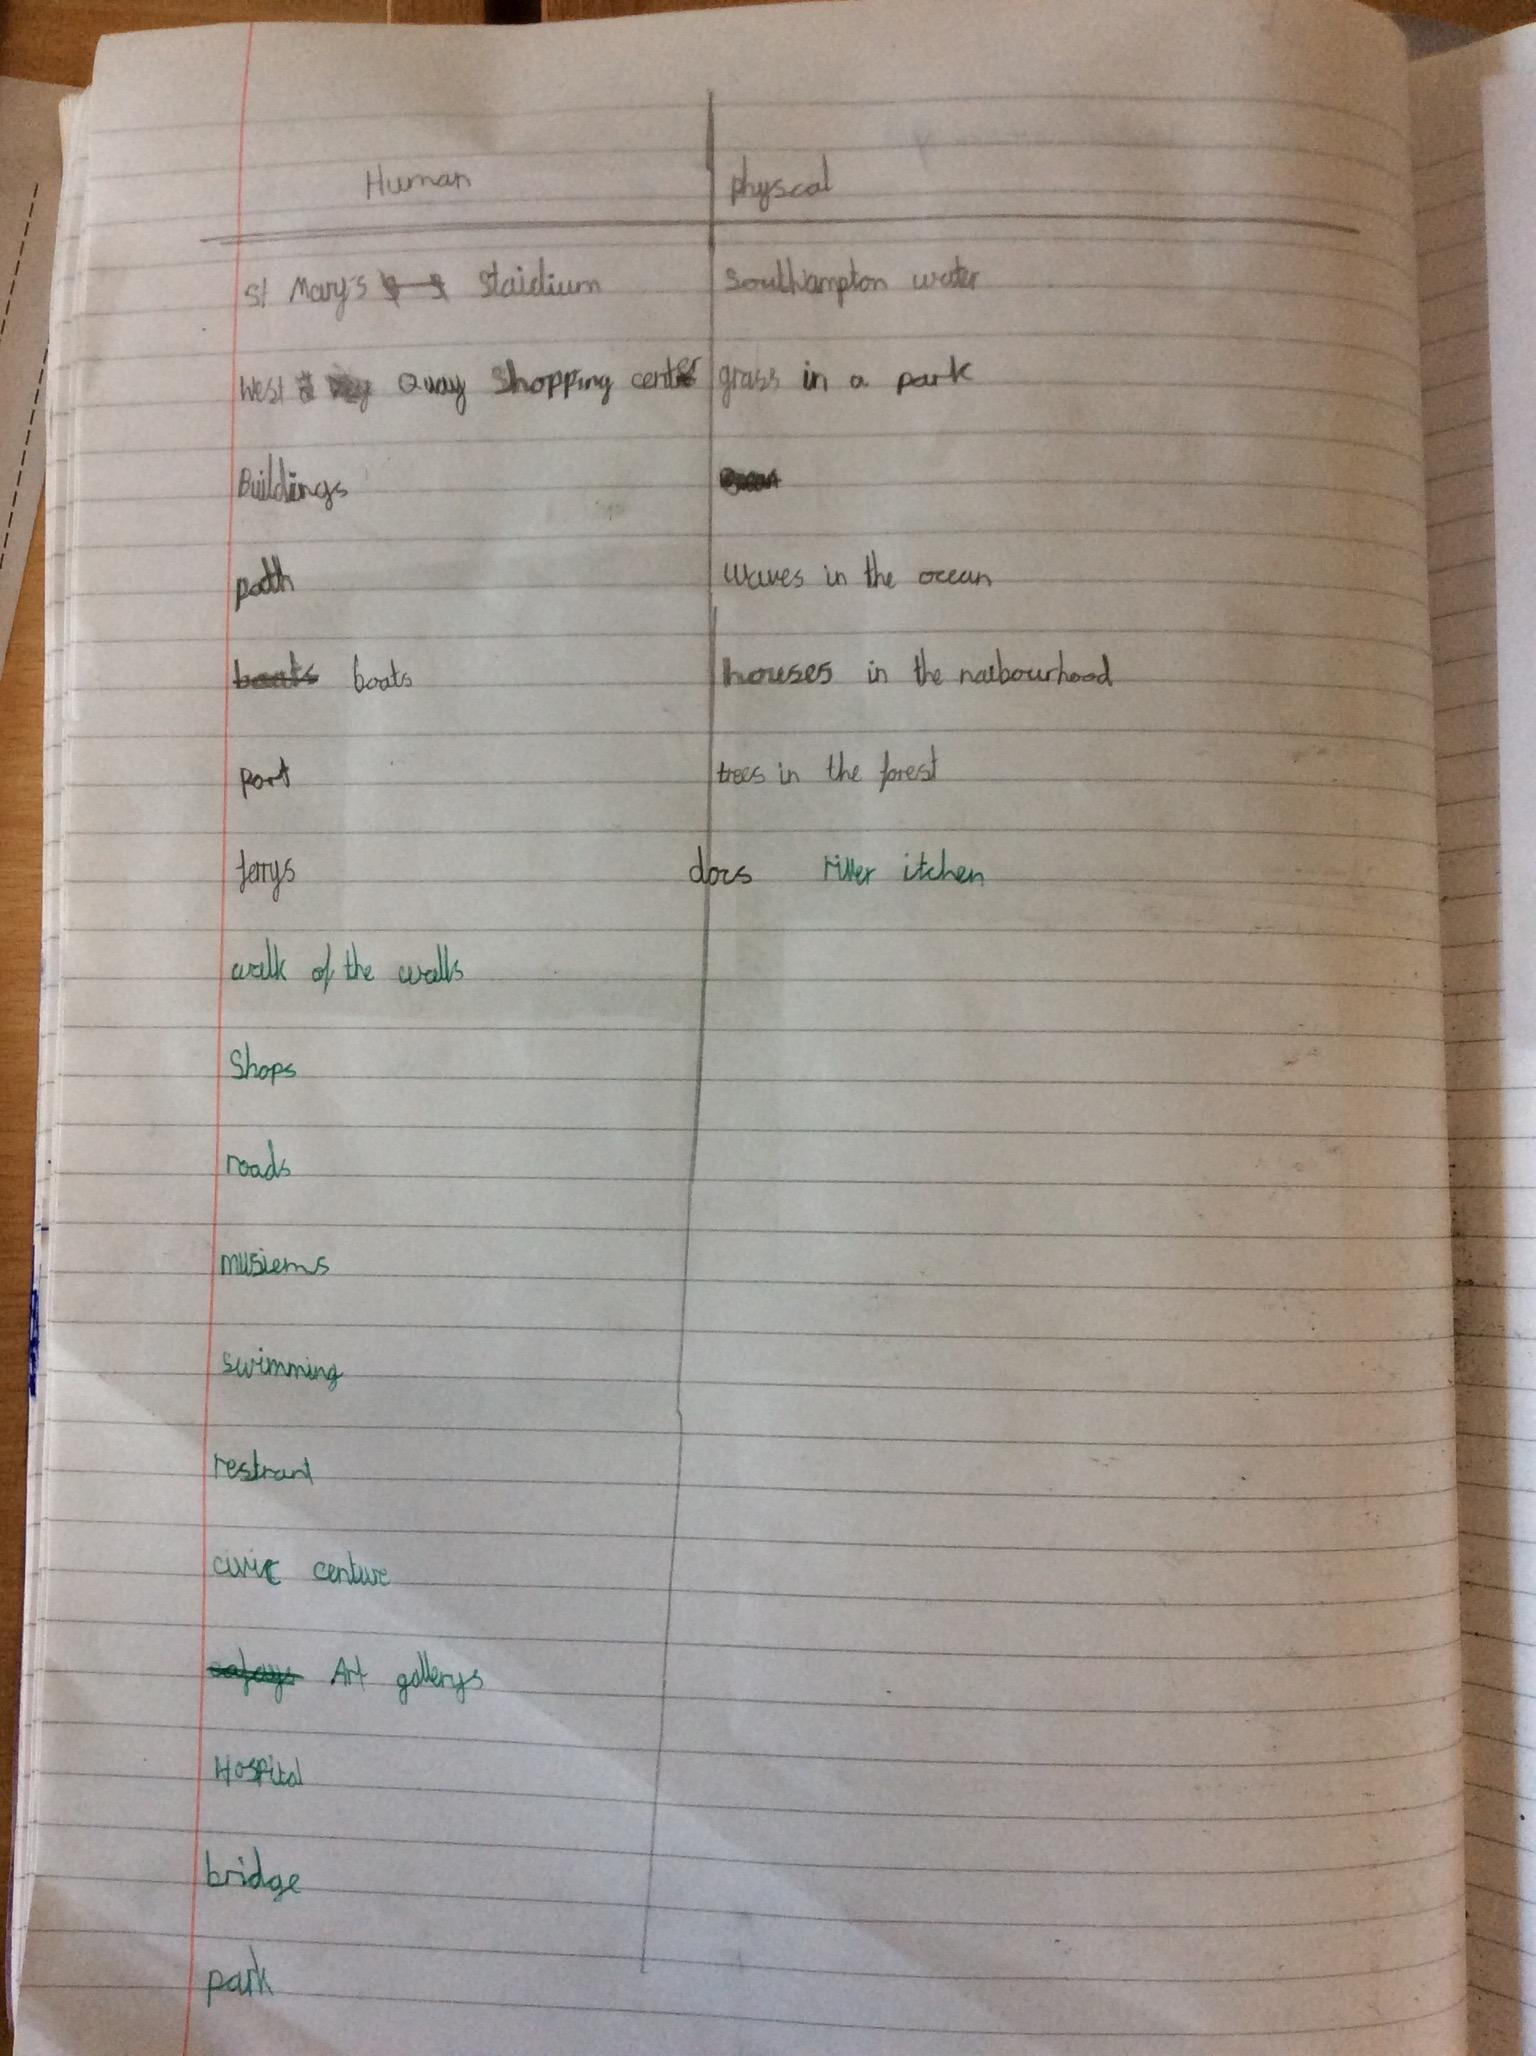 Human physcal
St Mary's Staidium Southampton water
West Quay Shopping center grass in a park
Buildings
path waves in the ocean
boats boats houses in the naibourhood
port trees in the forest
ferrys docs river itchen
walk of the walls
Shops
roads
musiems
swimming
restrant
civic centure
Art gallerys
Hospital
bridge
park